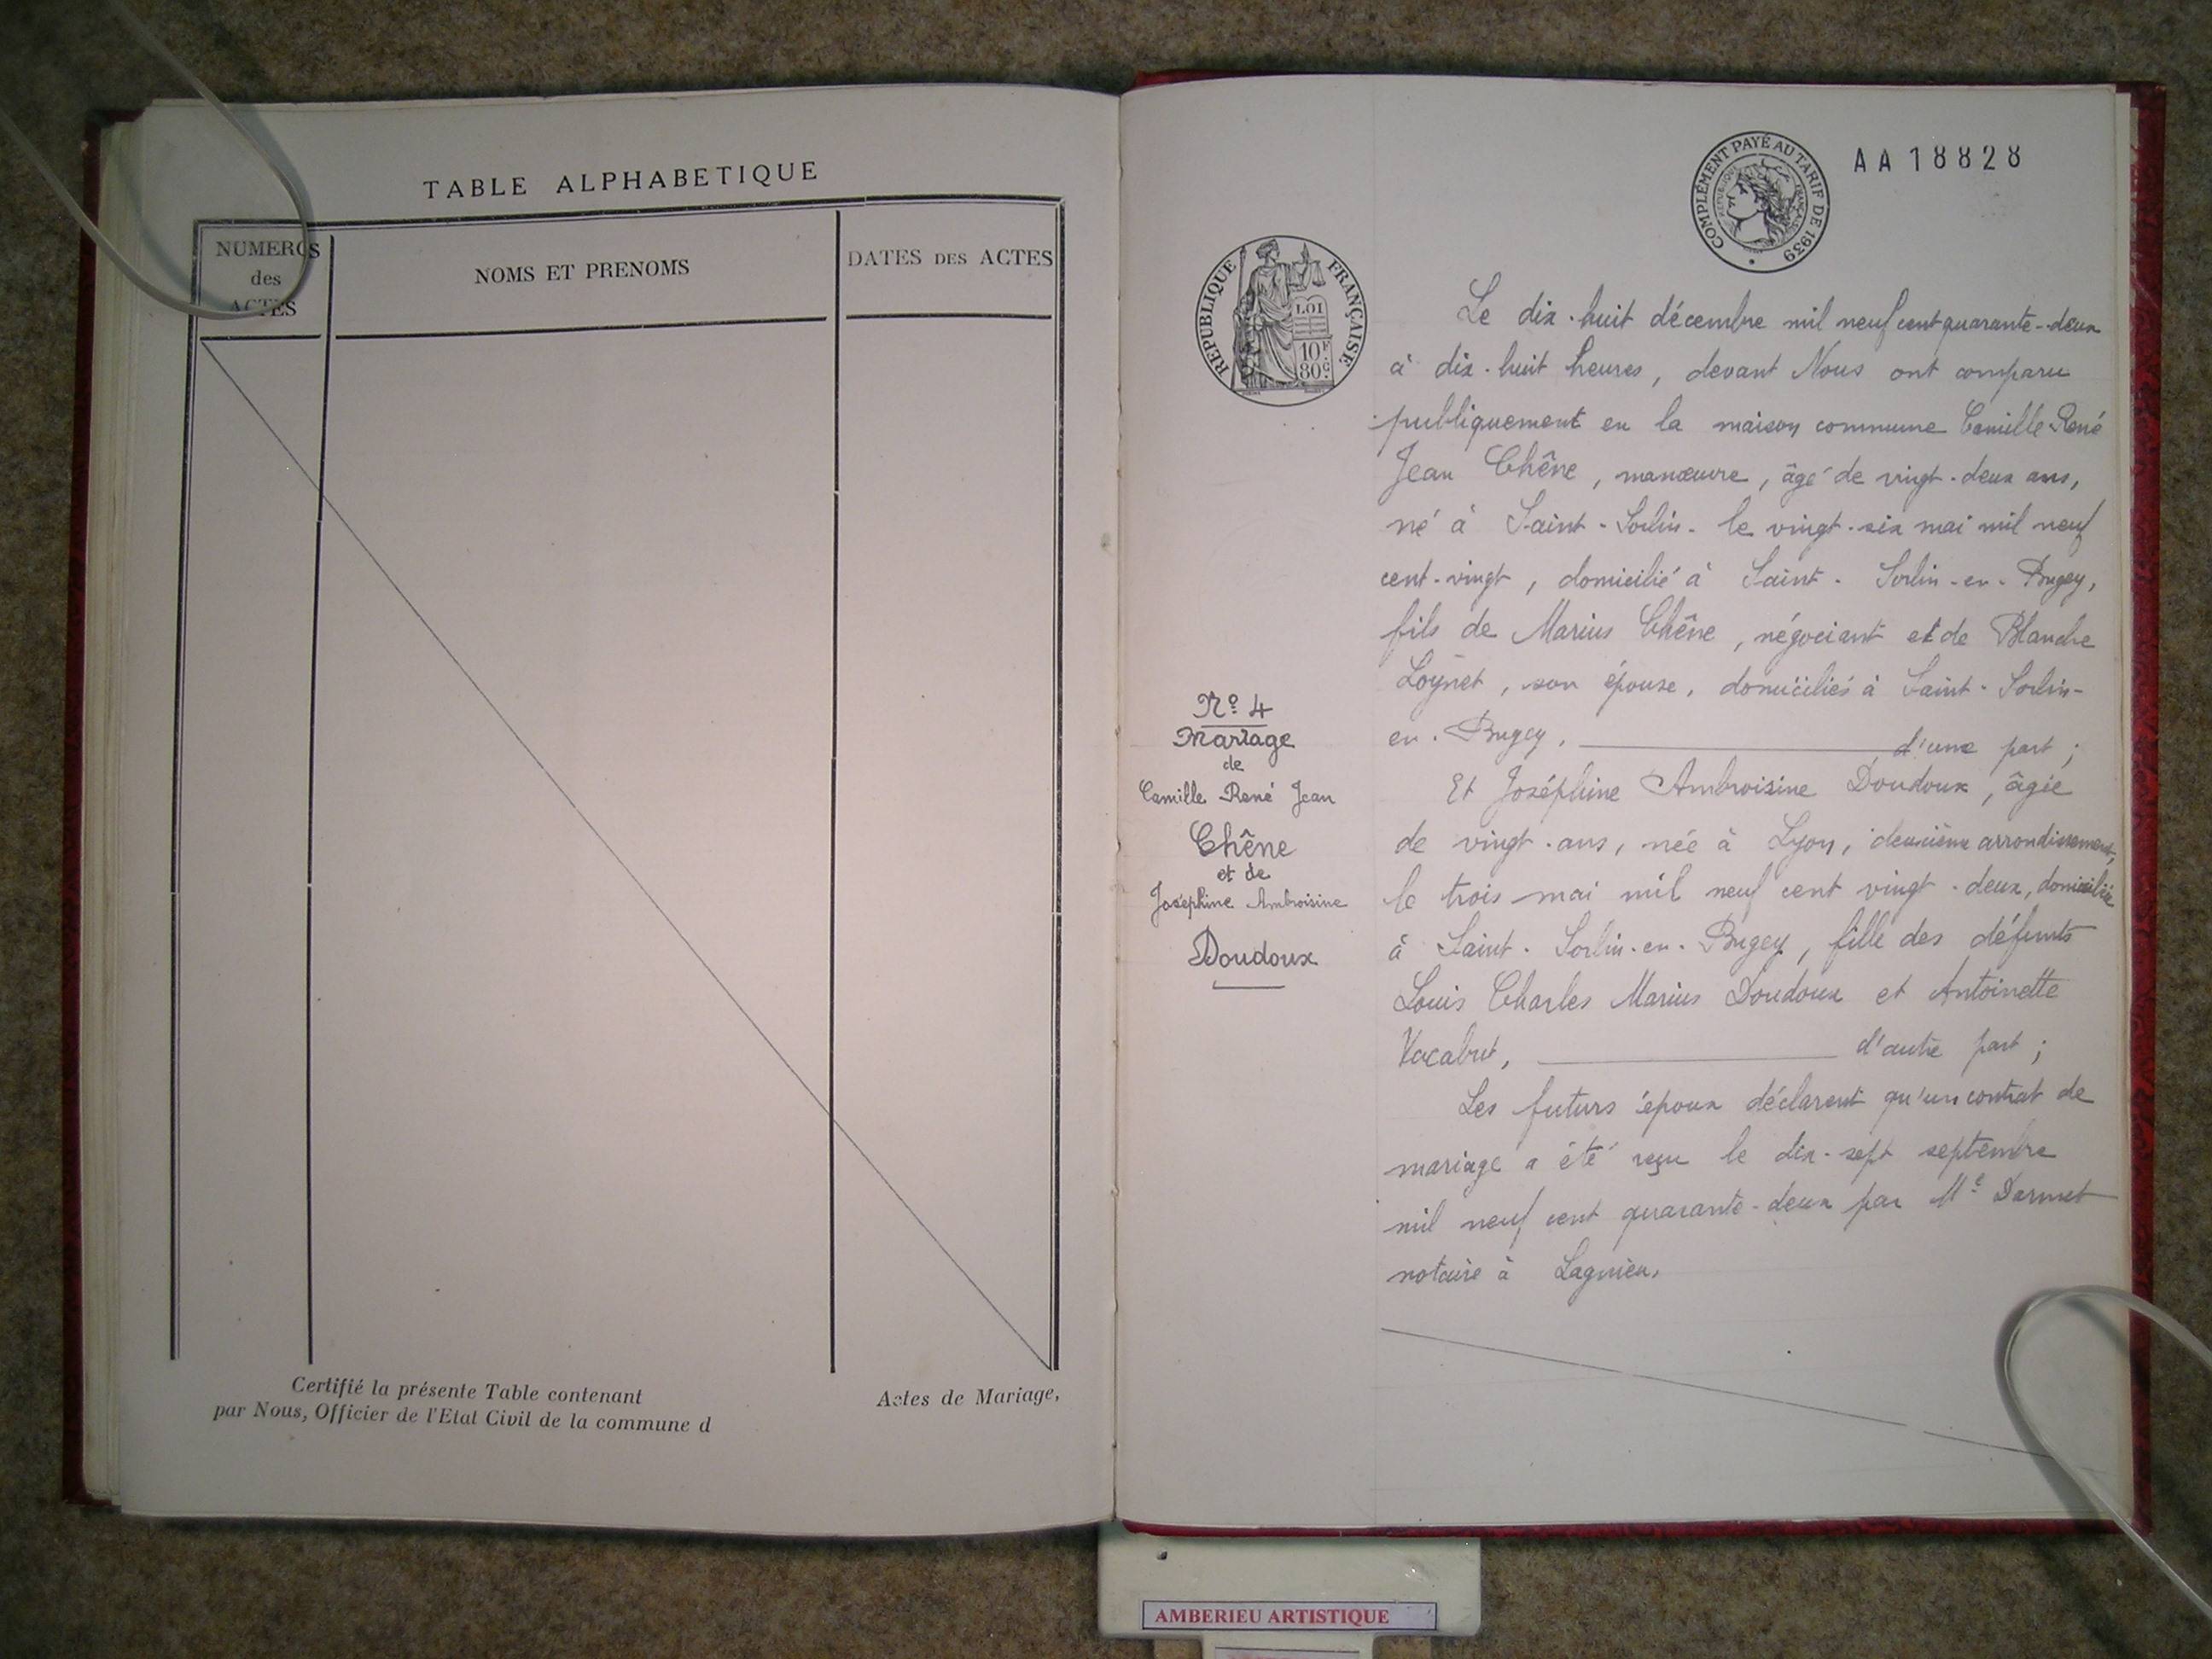 TABLE ALPHABETIQUE
NUMEROS
des
ACTES
NOMS ET PRENOMS
DATES DES ACTES
Certifié la présente Table contenant
Actes de Mariage,
par Nous, Officier de l'Etat Civil de la commune d
COMPLÉMENT PAYÉ AU TARIF DE 1939
RÉPUBLIQUE FRANÇAISE
AA 18828
REPUBLIQUE FRANÇAISE
LOI
10F
80c
N° 4
Mariage
de
Camille René Jean
Chêne
et de
Joséphine Ambroisine
Doudoux
Le dix-huit décembre mil neuf cent quarante-deux
à dix-huit heures, devant Nous ont comparu
publiquement en la maison commune Camille René
Jean Chêne, manœuvre, âgé de vingt-deux ans,
né à Saint-Sorlin- le vingt-six mai mil neuf
cent-vingt, domicilié à Saint-Sorlin-en-Bugey,
fils de Marius Chêne, négociant et de Blanche
Loÿnet, son épouse, domiciliés à Saint-Sorlin-
en-Bugey, d'une part;
Et Joséphine Ambroisine Doudoux, âgée
de vingt-ans, née à Lyon, deuxième arrondissement,
le trois mai mil neuf cent vingt-deux, domiciliée
à Saint-Sorlin-en-Bugey, fille des défunts
Louis Charles Marius Doudoux et Antoinette
Vacabut, d'autre part;
Les futurs époux déclarent qu'un contrat de
mariage a été reçu le dix-sept septembre
mil neuf cent quarante-deux par Me Darmet
notaire à Lagnieu.
AMBERIEU ARTISTIQUE